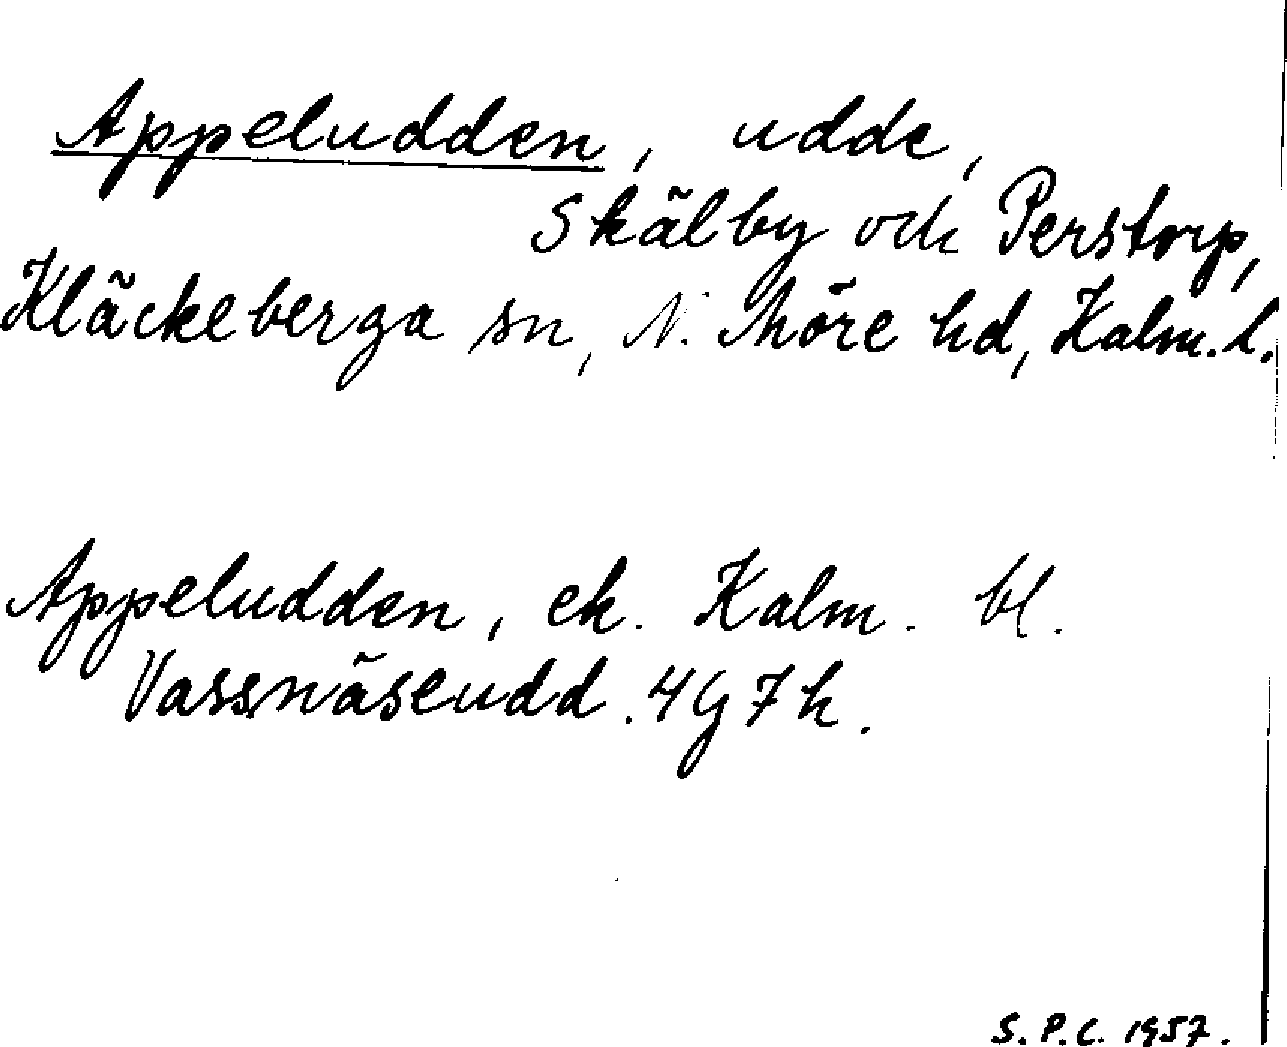 Appeludden, udde,
Skälby och Perstorp,
Kläckeberga sn, N. Möre hd, Kalm. l.
Appeludden, ek. Kalm. bl.
Vassnäseudd. 4G7h.
S.P.C. 1957.